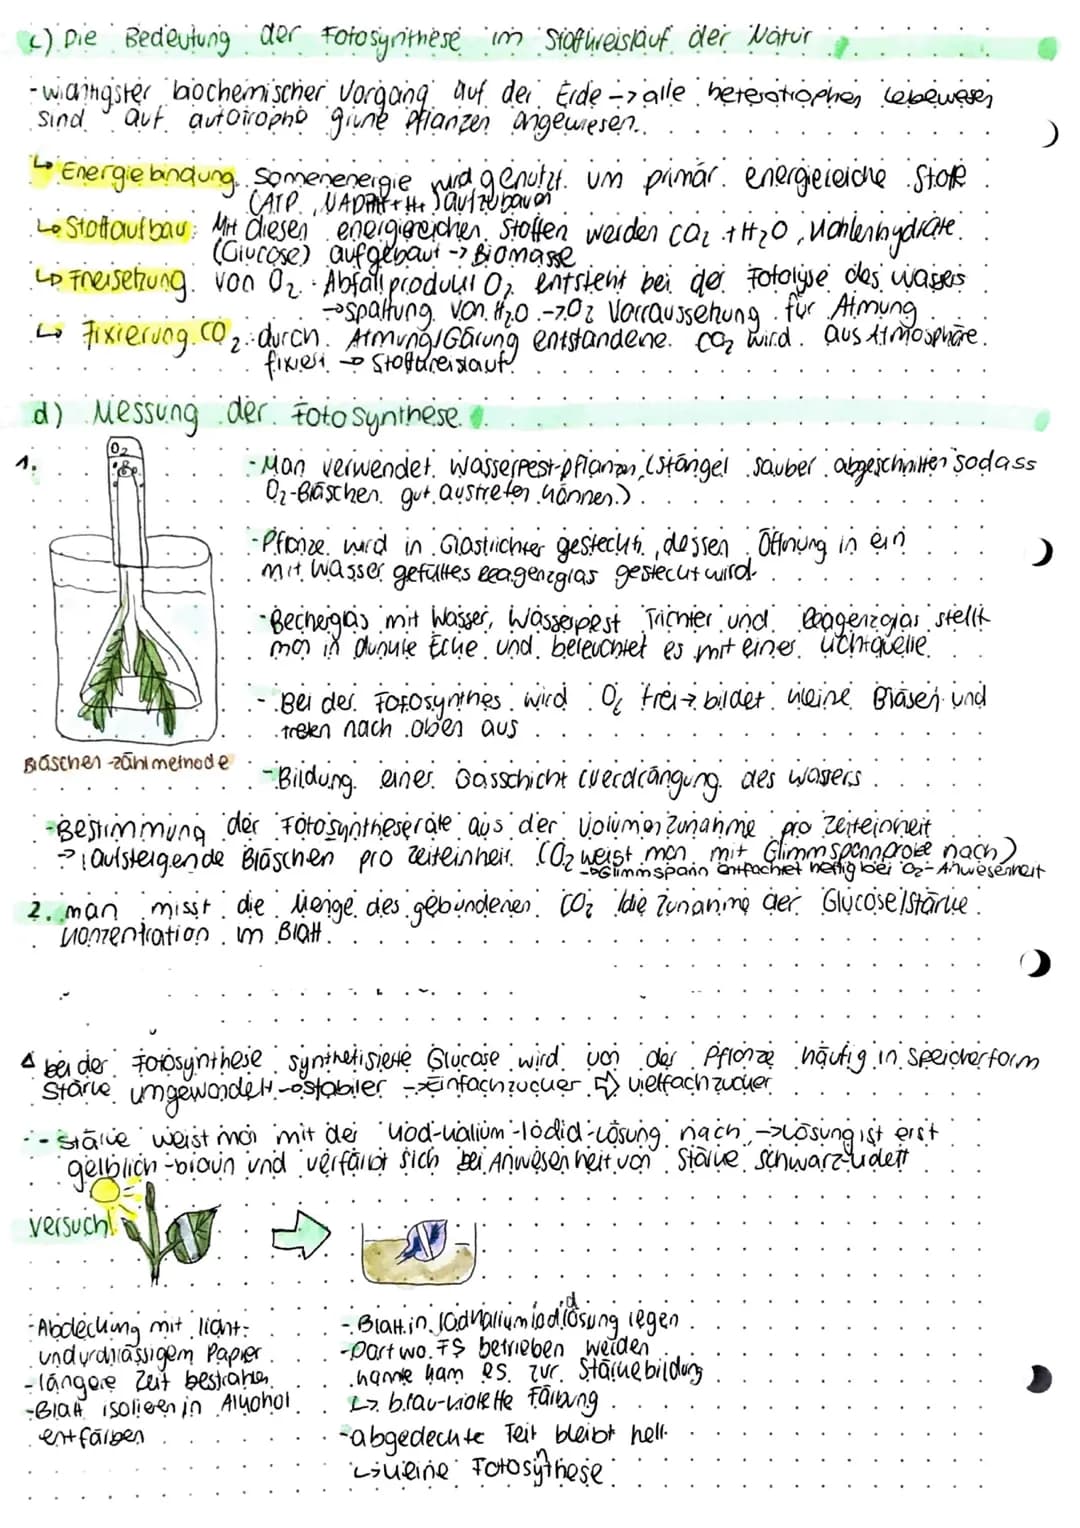 c) Die Bedeutung der Fotosynthese im Stoffkreislauf der Natur
- wichtigster biochemischer Vorgang auf der Erde -> alle heterotrophen Lebewesen
sind auf autotrophe grüne Pflanzen angewiesen.
↳ Energiebindung: Sonnenenergie wird genutzt um primär energiereiche Stoffe
(ATP, NADPH+H+) aufzubauen
↳ Stoffaufbau: Mit diesen energiereichen Stoffen werden CO2 + H2O, Kohlenhydrate
(Glucose) aufgebaut -> Biomasse
↳ Freisetzung von O2: Abfallprodukt O2 entsteht bei der Fotolyse des Wassers
→ Spaltung von H2O -> O2 Vorraussetzung für Atmung
↳ Fixierung CO2: durch Atmung/Gärung entstandene CO2 wird aus Atmosphäre
fixiert → Stoffkreislauf
d) Messung der Fotosynthese
1.
O2
- Man verwendet Wasserpest-pflanzen (Stängel sauber abgeschnitten sodass
O2-Bläschen gut austreten können.)
- Pflanze wird in Glastrichter gesteckt, dessen Öffnung in ein
mit Wasser gefülltes Reagenzglas gesteckt wird.
- Becherglas mit Wasser, Wasserpest Trichter und Reagenzglas stellt
man in dunkle Ecke und beleuchtet es mit einer Lichtquelle.
- Bei der Fotosynthes wird O2 frei → bildet kleine Blasen und
treten nach oben aus
Bläschen-zählmethode
- Bildung einer Gasschicht (Verdrängung des Wassers
- Bestimmung der Fotosyntheserate aus der Volumenzunahme pro Zeiteinheit
-> (aufsteigende Bläschen pro Zeiteinheit. (O2 weist man mit Glimmspannprobe nach)
→ Glimmspann entfachet heftig bei O2-Anwesenheit
2. man misst die Menge des gebundenen CO2 / die Zunahme der Glucose/Stärke
Konzentration im Blatt.
bei der Fotosynthese synthetisierte Glucose wird von der Pflanze häufig in Speicherform
Stärke umgewandelt → stabiler -> Einfachzucker ⇨ Vielfachzucker
- Stärke weist man mit der Iod-Kalium-Iodid-Lösung nach, -> Lösung ist erst
gelblich-braun und verfärbt sich bei Anwesenheit von Stärke schwarz-violett
Versuch!
- Abdeckung mit licht-
undurchlässigem Papier
- längere Zeit bestrahlen
- Blatt isolieren in Alkohol
entfärben
- Blatt in Iodkaliumiodidlösung legen
- Dort wo FS betrieben werden
kannte kam es zur Stärkebildung
↳ blau-violette Färbung
- abgedeckte Teil bleibt hell
↳ keine Fotosynthese